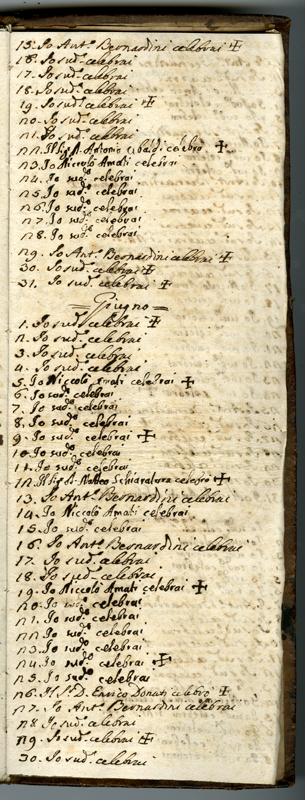 15. Io Ant.º Bernardini celebrai ✠
16. Io sud.º celebrai
17. Io sud.º celebrai
18. Io sud.º celebrai
19. Io sud.º celebrai ✠
20. Io sud.º celebrai
21. Io sud.º celebrai
22. Antonio celebrò ✠
23. Io Niccolò Amati celebrai
24. Io sud.º celebrai
25. Io sud.º celebrai
26. Io sud.º celebrai
27. Io sud.º celebrai
28. Io sud.º celebrai
29. Io Ant.º Bernardini celebrai ✠
30. Io sud.º celebrai ✠
31. Io sud.º celebrai ✠
= Giugno =
1. Io sud.º celebrai ✠
2. Io sud.º celebrai
3. Io sud.º celebrai
4. Io sud.º celebrai
5. Io Niccolò Amati celebrai ✠
6. Io sud.º celebrai
7. Io sud.º celebrai
8. Io sud.º celebrai
9. Io sud.º celebrai ✠
10. Io sud.º celebrai
11. Io sud.º celebrai
12. Matteo Schiaratura celebrò ✠
13. Io Ant.º Bernardini celebrai
14. Io Niccolò Amati celebrai
15. Io sud.º celebrai
16. Io Ant.º Bernardini celebrai
17. Io sud.º celebrai
18. Io sud.º celebrai
19. Io Niccolò Amati celebrai ✠
20. Io sud.º celebrai
21. Io sud.º celebrai
22. Io sud.º celebrai
23. Io sud.º celebrai
24. Io sud.º celebrai ✠
25. Io sud.º celebrai
26. Il S.r D. Enrico Donati celebrò ✠
27. Io Ant.º Bernardini celebrai
28. Io sud.º celebrai
29. Io sud.º celebrai ✠
30. Io sud.º celebrai